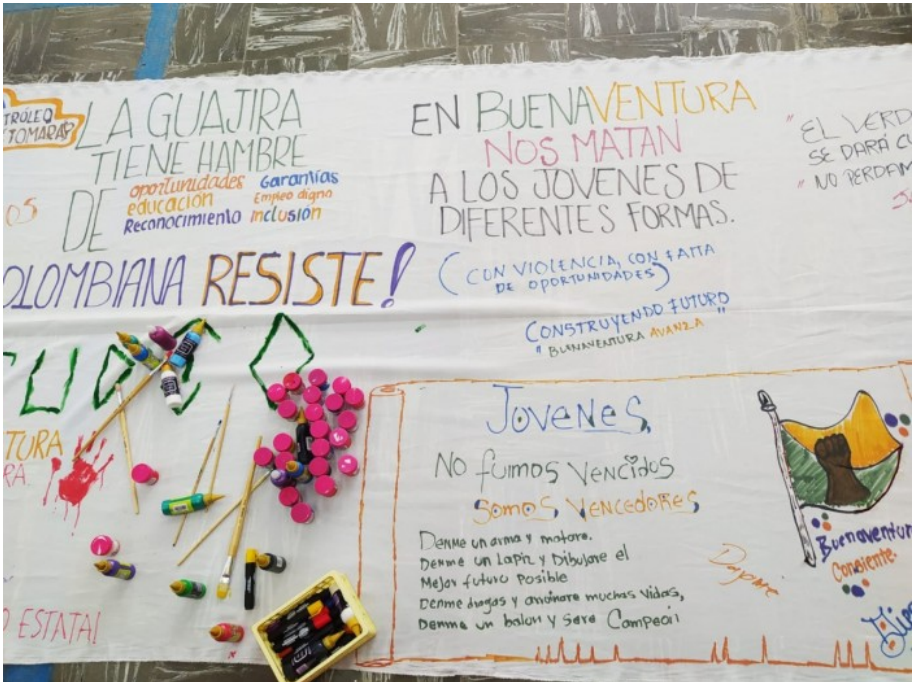 TRÓLEO
TOMARA?
LA GUAJIRA
TIENE HAMBRE
DE
oportunidades Garantías
educación Empleo digno
Reconocimiento inclusión
OS
OLOMBIANA RESISTE!
TURA
RA.
O ESTATAL
EN BUENAVENTURA
NOS MATAN
A LOS JOVENES DE
DIFERENTES FORMAS.
(CON VIOLENCIA, CON FALTA
DE OPORTUNIDADES)
CONSTRUYENDO FUTURO
"BUENAVENTURA AVANZA"
"EL VERD
SE DARÁ CU
"NO PERDAM
JOVENES,
NO fuimos Vencidos
Somos Vencedores
Denme un arma y matare.
Denme un Lapiz y Dibujare el
Mejor futuro Posible
Denme drogas y arruinare muchas Vidas,
Denme un balon y sere Campeon
Buenaventura
Consiente.